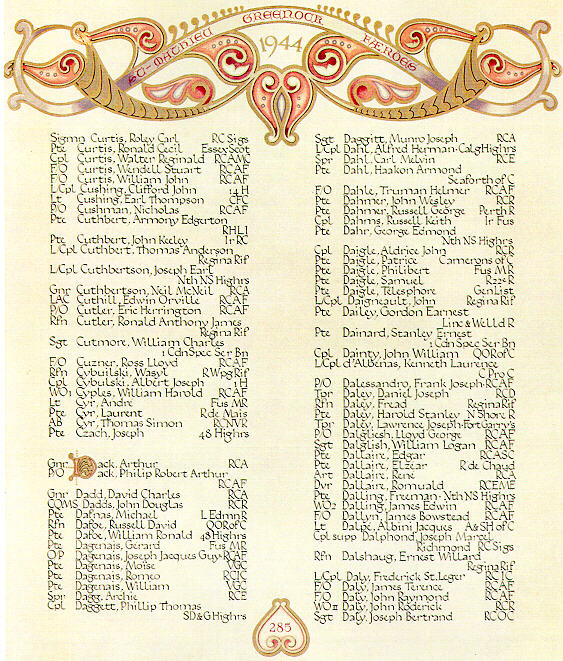 ST-MATHIEU GREENOCK FÆROES
1944
Sigmn Curtis, Roley Carl RC Sigs
Pte Curtis, Ronald Cecil Essex Scot
Cpl Curtis, Walter Reginald RCAMC
F/O Curtis, Wendell Stuart RCAF
F/O Curtis, William John RCAF
L/Cpl Cushing, Clifford John 14 H
Lt Cushing, Earl Thompson CFC
P/O Cushman, Nicholas RCAF
Pte Cuthbert, Armony Edgerton
RHLI
Pte Cuthbert, John Keeley Ir RC
L/Cpl Cuthbert, Thomas Anderson
Regina Rif
L/Cpl Cuthbertson, Joseph Earl
Nth NS Highrs
Gnr Cuthbertson, Neil McNeil RCA
LAC Cuthill, Edwin Orville RCAF
P/O Cutler, Eric Herrington RCAF
Rfn Cutler, Ronald Anthony James
Regina Rif
Sgt Cutmore, William Charles
1 Cdn Spec Ser Bn
F/O Cuzner, Ross Lloyd RCAF
Rfn Cybuilski, Wasyl R Wpg Rif
Cpl Cybulski, Albert Joseph 1 H
WO1 Cyples, William Harold RCAF
Lt Cyr, Andre Fus MR
Pte Cyr, Laurent R de Mais
AB Cyr, Thomas Simon RCNVR
Pte Czach, Joseph 48 Highrs
Gnr Dack, Arthur RCA
P/O Dack, Philip Robert Arthur
RCAF
Gnr Dadd, David Charles RCA
CQMS Dadds, John Douglas RCR
Pte Dafnas, Michael L Edmn R
Rfn Dafoe, Russell David QOR of C
Pte Dafoe, William Ronald 48 Highrs
Pte Dagenais, Gerard Fus MR
OP Dagenais, Joseph Jacques Guy RCAF
Pte Dagenais, Moise VGC
Pte Dagenais, Romeo RCIC
Pte Dagenais, William VGC
Spr Dagg, Archie RCE
Cpl Daggett, Phillip Thomas
SD&G Highrs
Sgt Daggitt, Munro Joseph RCA
L/Cpl Dahl, Alfred Herman Calg Highrs
Spr Dahl, Carl Melvin RCE
Pte Dahl, Haakon Armond
Seaforth of C
F/O Dahle, Truman Helmer RCAF
Pte Dahmer, John Wesley RCR
Pte Dahmer, Russell George Perth R
Cpl Dahms, Russell Keith Ir Fus
Pte Dahr, George Edmond
Nth NS Highrs
Cpl Daigle, Aldrice John RCR
Pte Daigle, Patrice Camerons of C
Pte Daigle, Philibert Fus MR
Pte Daigle, Samuel R22e R
Pte Daigle, Telesphore Gen List
L/Cpl Daigneault, John Regina Rif
Pte Dailey, Gordon Earnest
Linc & Welld R
Pte Dainard, Stanley Ernest
1 Cdn Spec Ser Bn
Cpl Dainty, John William QOR of C
L/Cpl d'Albenas, Kenneth Laurence
C Pro C
P/O Dalessandro, Frank Joseph RCAF
Tpr Daley, Daniel Joseph RCD
Rfn Daley, Fread Regina Rif
Pte Daley, Harold Stanley N Shore R
Tpr Daley, Lawrence Joseph Fort Garry's
P/O Dalgliesh, Lloyd George RCAF
Sgt Dalglish, William Logan RCAF
Pte Dallaire, Edgar RCASC
Pte Dallaire, Elzear R de Chaud
Art Dallaire, Rene RCA
Dvr Dallaire, Romuald RCEME
Pte Dalling, Freeman Nth NS Highrs
WO2 Dalling, James Edwin RCAF
F/O Dallyn, James Bowstead RCAF
Lt Dalpe, Albini Jacques A & SH of C
Cpl supp Dalphond, Joseph Marcel
Richmond RC Sigs
Rfn Dalshaug, Ernest Willard
Regina Rif
L/Cpl Daly, Frederick St. Leger RCIC
F/O Daly, James Terence RCAF
F/O Daly, John Raymond RCAF
WO II Daly, John Roderick RCR
Sgt Daly, Joseph Bertrand RCOC
285